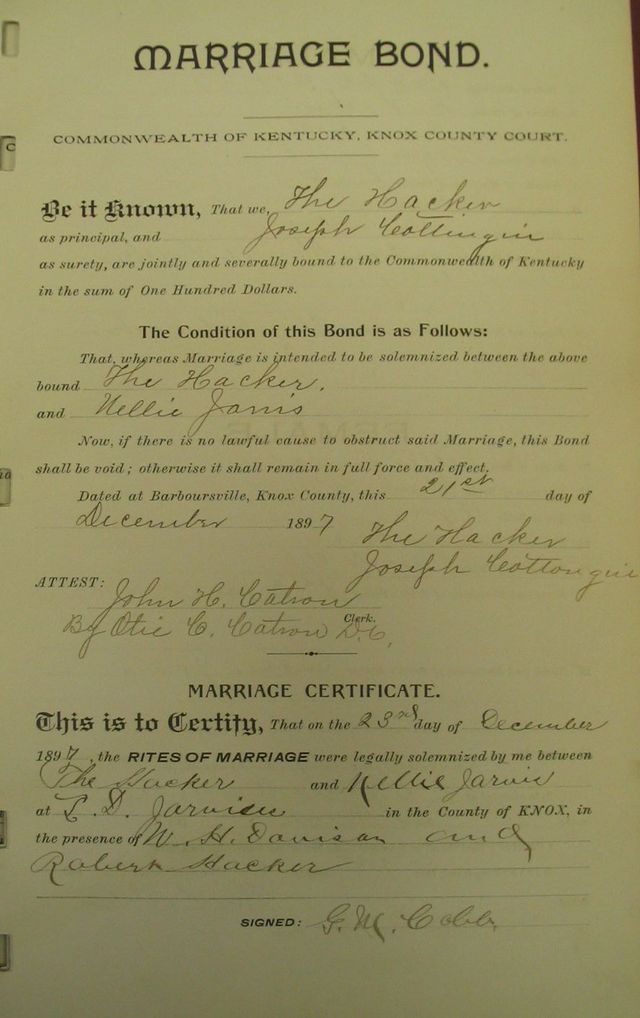 MARRIAGE BOND.
COMMONWEALTH OF KENTUCKY, KNOX COUNTY COURT.
Be it Known, That we, The Hacker
as principal, and Joseph Cottingin
as surety, are jointly and severally bound to the Commonwealth of Kentucky
in the sum of One Hundred Dollars.
The Condition of this Bond is as Follows:
That, whereas Marriage is intended to be solemnized between the above
bound The Hacker.
and Nellie Jarvis
Now, if there is no lawful cause to obstruct said Marriage, this Bond
shall be void; otherwise it shall remain in full force and effect.
Dated at Barboursville, Knox County, this 21st day of
December 1897
The Hacker
Joseph Cottongin
ATTEST:
John H. Catron
Clerk.
By Otie C. Catron D.C.
MARRIAGE CERTIFICATE.
This is to Certify, That on the 23rd day of December
1897, the RITES OF MARRIAGE were legally solemnized by me between
The Hacker and Nellie Jarvis
at L. D. in the County of KNOX, in
the presence of W. H. Davison and
Robert Hacker
SIGNED: G. M. Cobb.